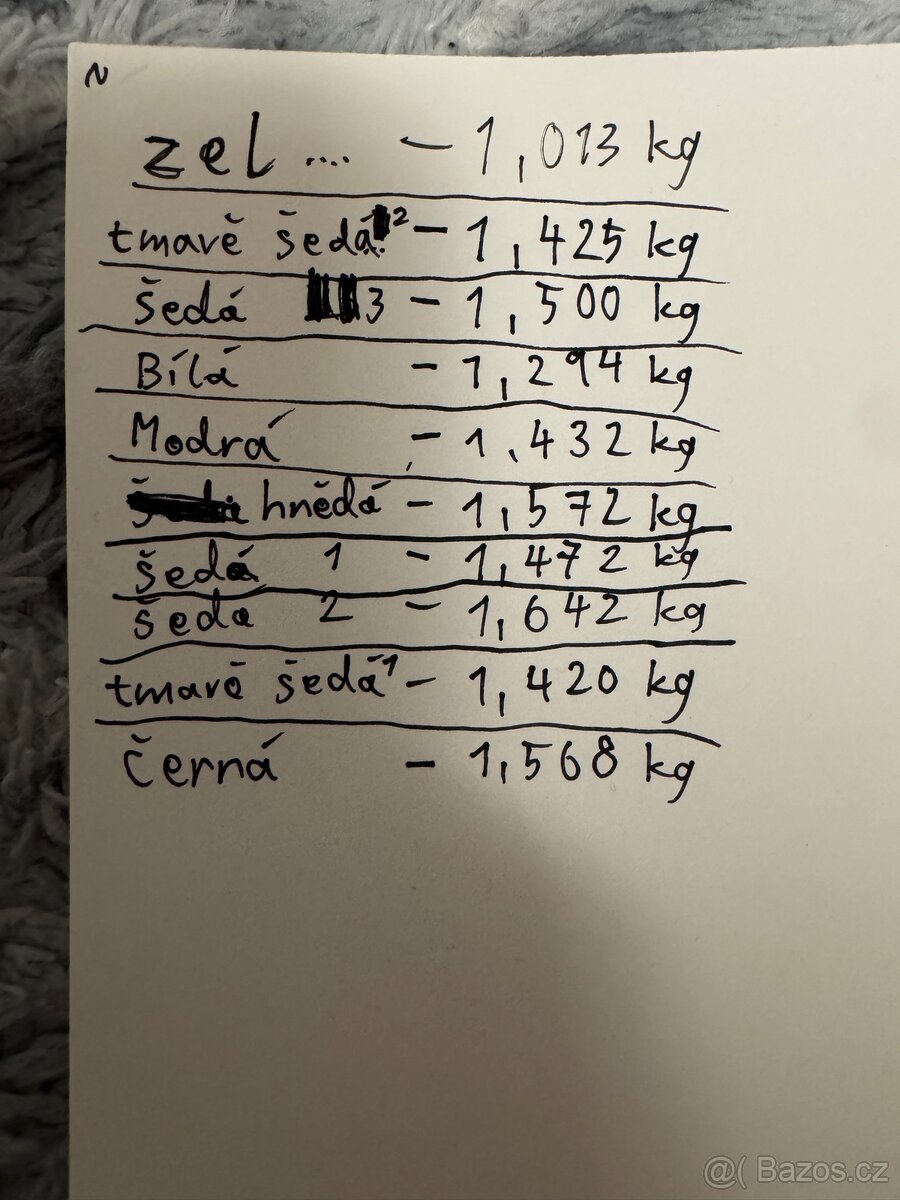 ~
zel .... - 1,013 kg
tmavě šedá 2 - 1,425 kg
šedá 3 - 1,500 kg
Bílá - 1,294 kg
Modrá - 1,432 kg
hnědá - 1,572 kg
šedá 1 - 1,472 kg
šedá 2 - 1,642 kg
tmavě šedá 1 - 1,420 kg
Černá - 1,568 kg
@( Bazos.cz